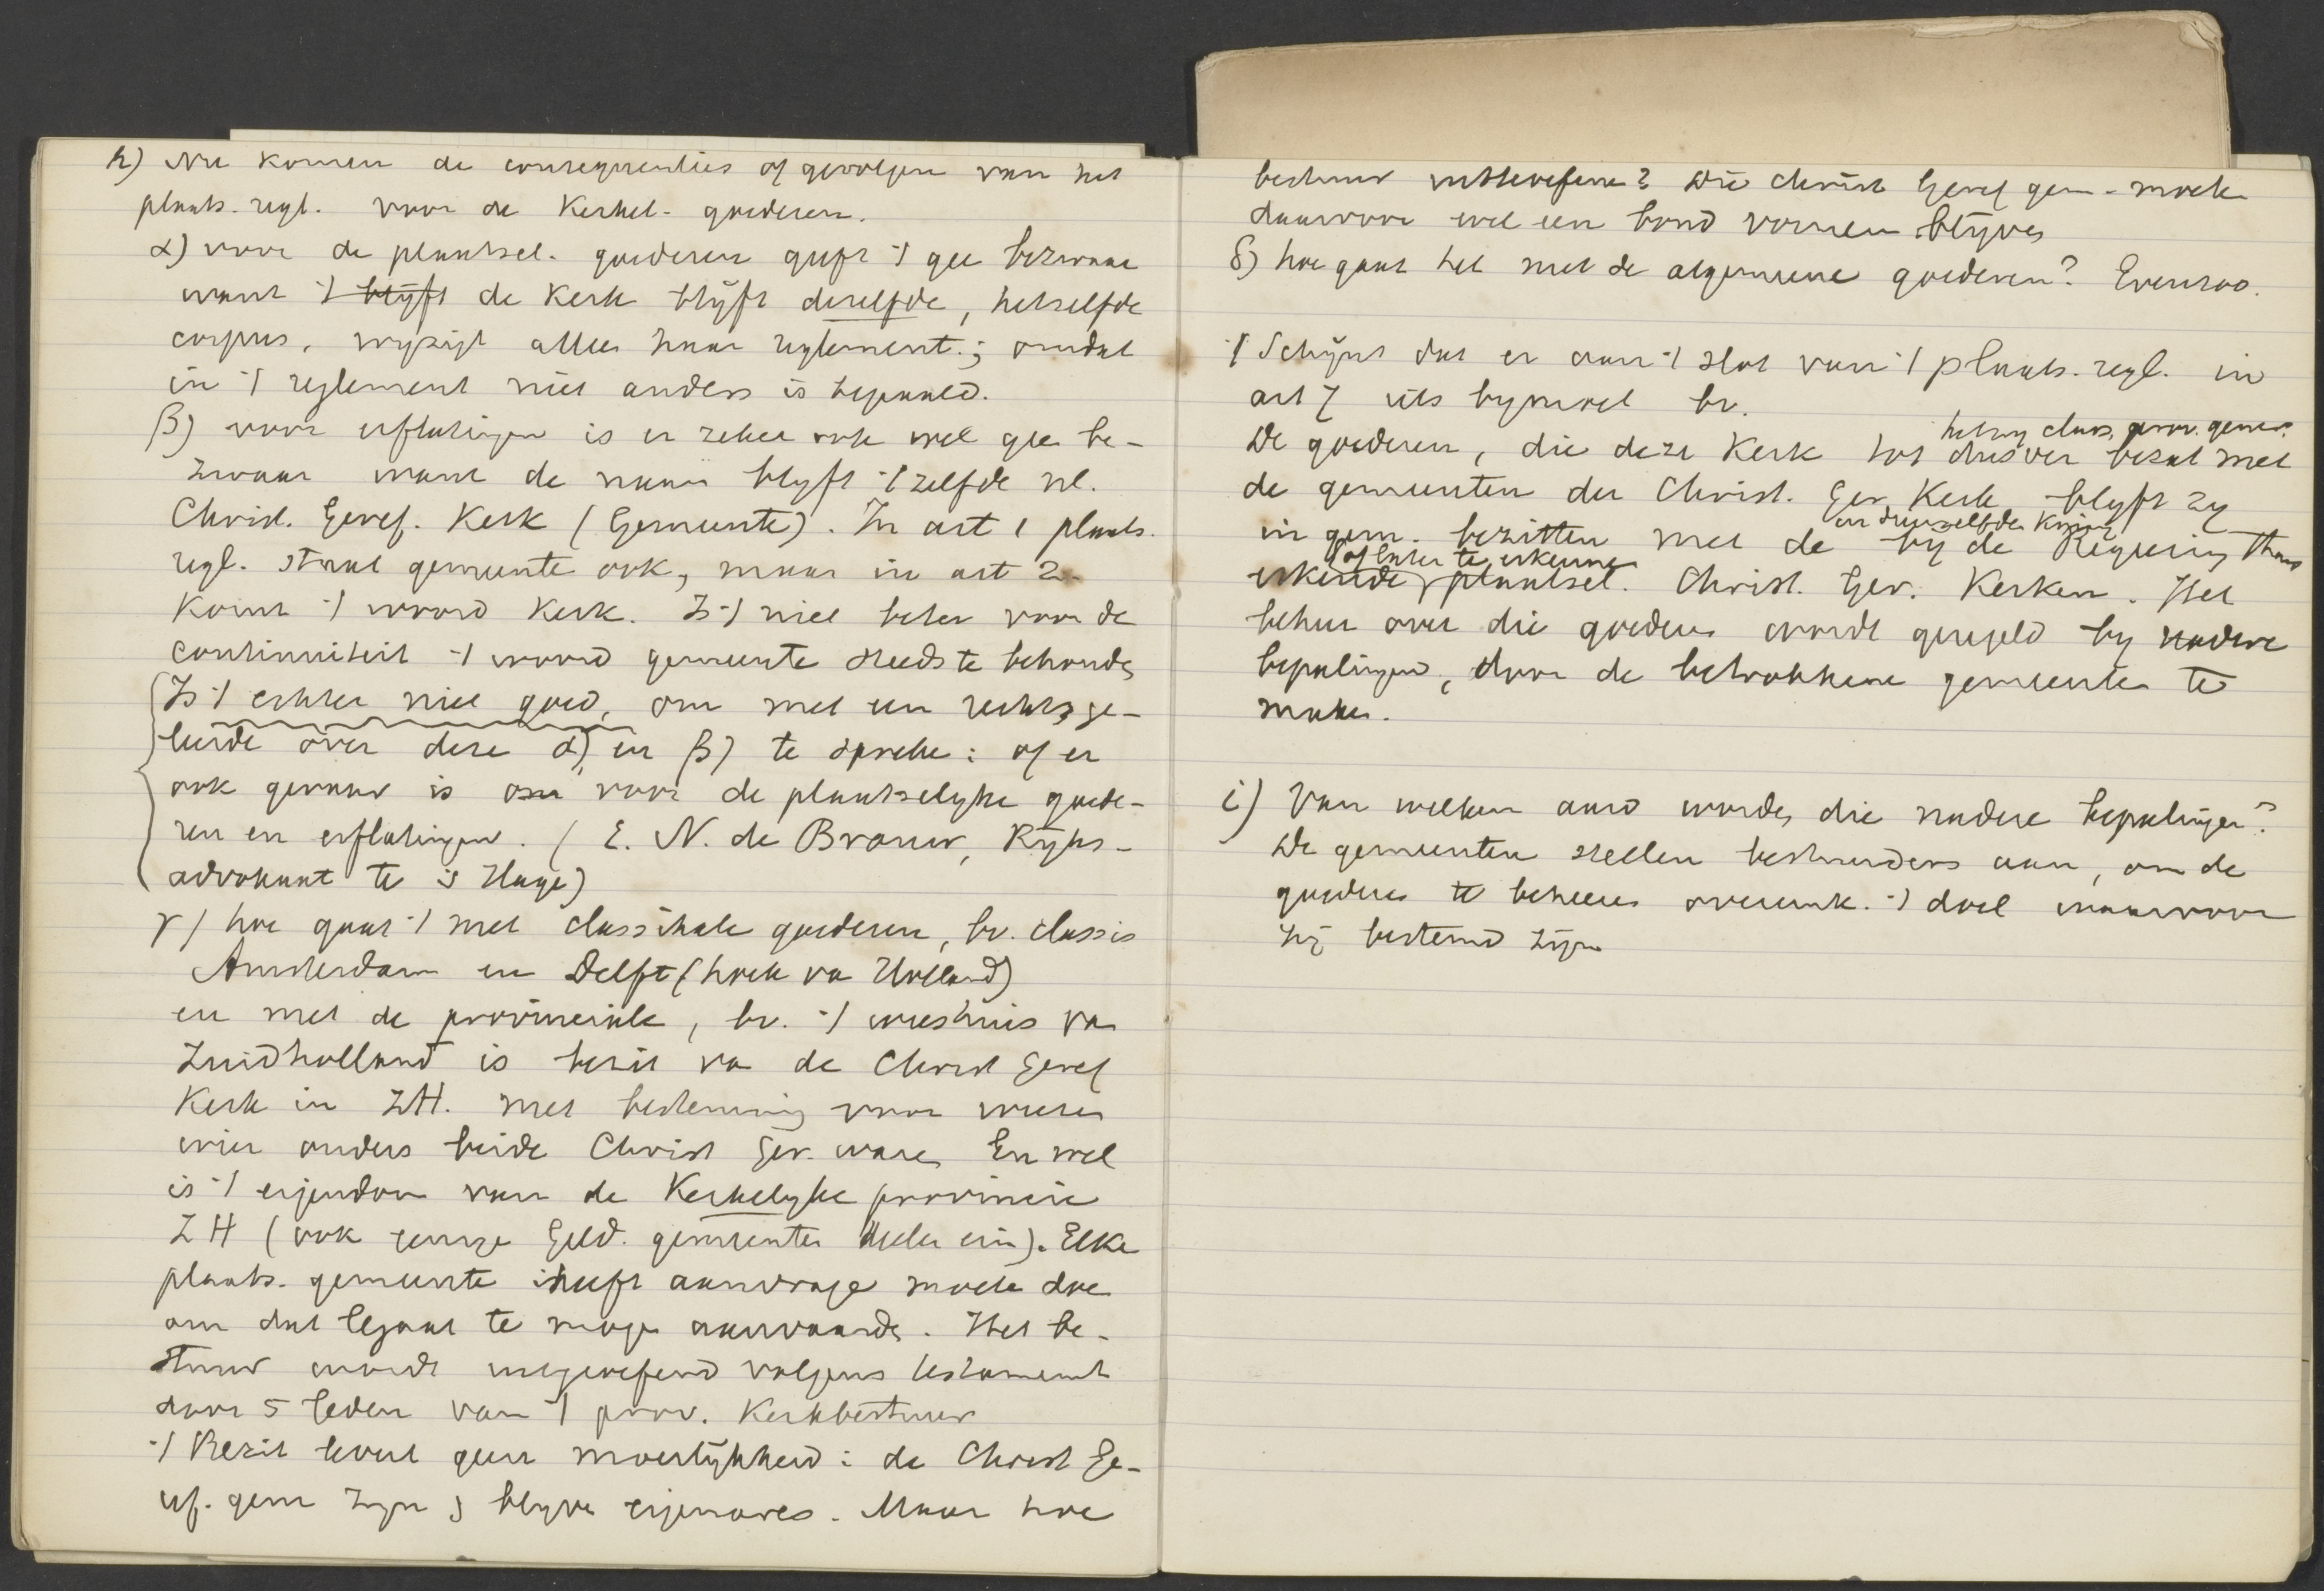 h) Nu komen de consequenties of gevolgen van het
plaats. regl. voor de Kerkel. goederen.
α) voor de plaatsel. goederen geeft 't gee bezwaar
want 't blijft de Kerk blijft dezelfde, hetzelfde
corpus, wijzigt alleen haar reglement; omdat
in 't reglement niet anders is bepaald.
β) voor erflatingen is er zeker ook wel gee be-
zwaar want de naam blijft 't zelfde nl.
Christ. Geref. Kerk (Gemeente). In art 1 plaats.
regl. staat gemeente ook, maar in art 2.
komt 't woord Kerk. Is 't niet beter voor de
continuiteit 't woord gemeente steeds te behoude
Is 't echter niet goed, om met een rechtsge-
leerde over deze α) en β) te spreke: of er
ook gevaar is voor de plaatselijke goede-
ren en erflatingen. (E. N. de Brauw, Rijks-
advokaat te 's Hage)
γ) hoe gaat 't met classikale goederen, bv. classis
Amsterdam en Delft (hoek va Holland)
en met de provinciale, bv. 't weeshuis va
Zuidholland is bezit va de Christ Geref
Kerk in ZH. met bestemming voor weezen
wier ouders beide Christ Ger. ware En wel
is 't eigendom van de Kerkelijke provincie
ZH (ook eenige Geld. gemeenten deelen erin). Elke
plaats. gemeente heeft aanvrage moete doe
om dat legaat te moge aanvaarde. Het be-
stuur wordt uitgeoefend volgens testament
door 5 leden van 't prov. Kerkbestuur
't Bezit levert geen moeilijkheid: de Christ Ge-
ref. gem zijn & blijve eigenares. Maar hoe
bestuur uitteoefene? Die Christ Geref gem. moete
daarvoor wel een bond vormen blijve
δ) hoe gaat het met de algemeene goederen? Evenzoo.
't Schijnt dat er aan 't slot van 't plaats. regl. in
art 7 iets bijmoet bv.
hetzij class, prov. gener.
De goederen, die deze Kerk tot dusver bezat met
de gemeenten der Christ. Ger. Kerk blijft zij
in gem. bezitten met de bij de Regering thans
en denzelfden kring
of later te erkenne
erkende plaatsel. Christ. Ger. Kerken. Het
beheer over die goederen wordt geregeld bij nadere
bepalingen, door de betrokkene gemeenten te
maken.
i) Van welken aard worde die nadere bepalingen?
De gemeenten stellen bestuurders aan, om de
goederen te beheeren overeenk. 't doel waarvoor
zij bestemd zijn